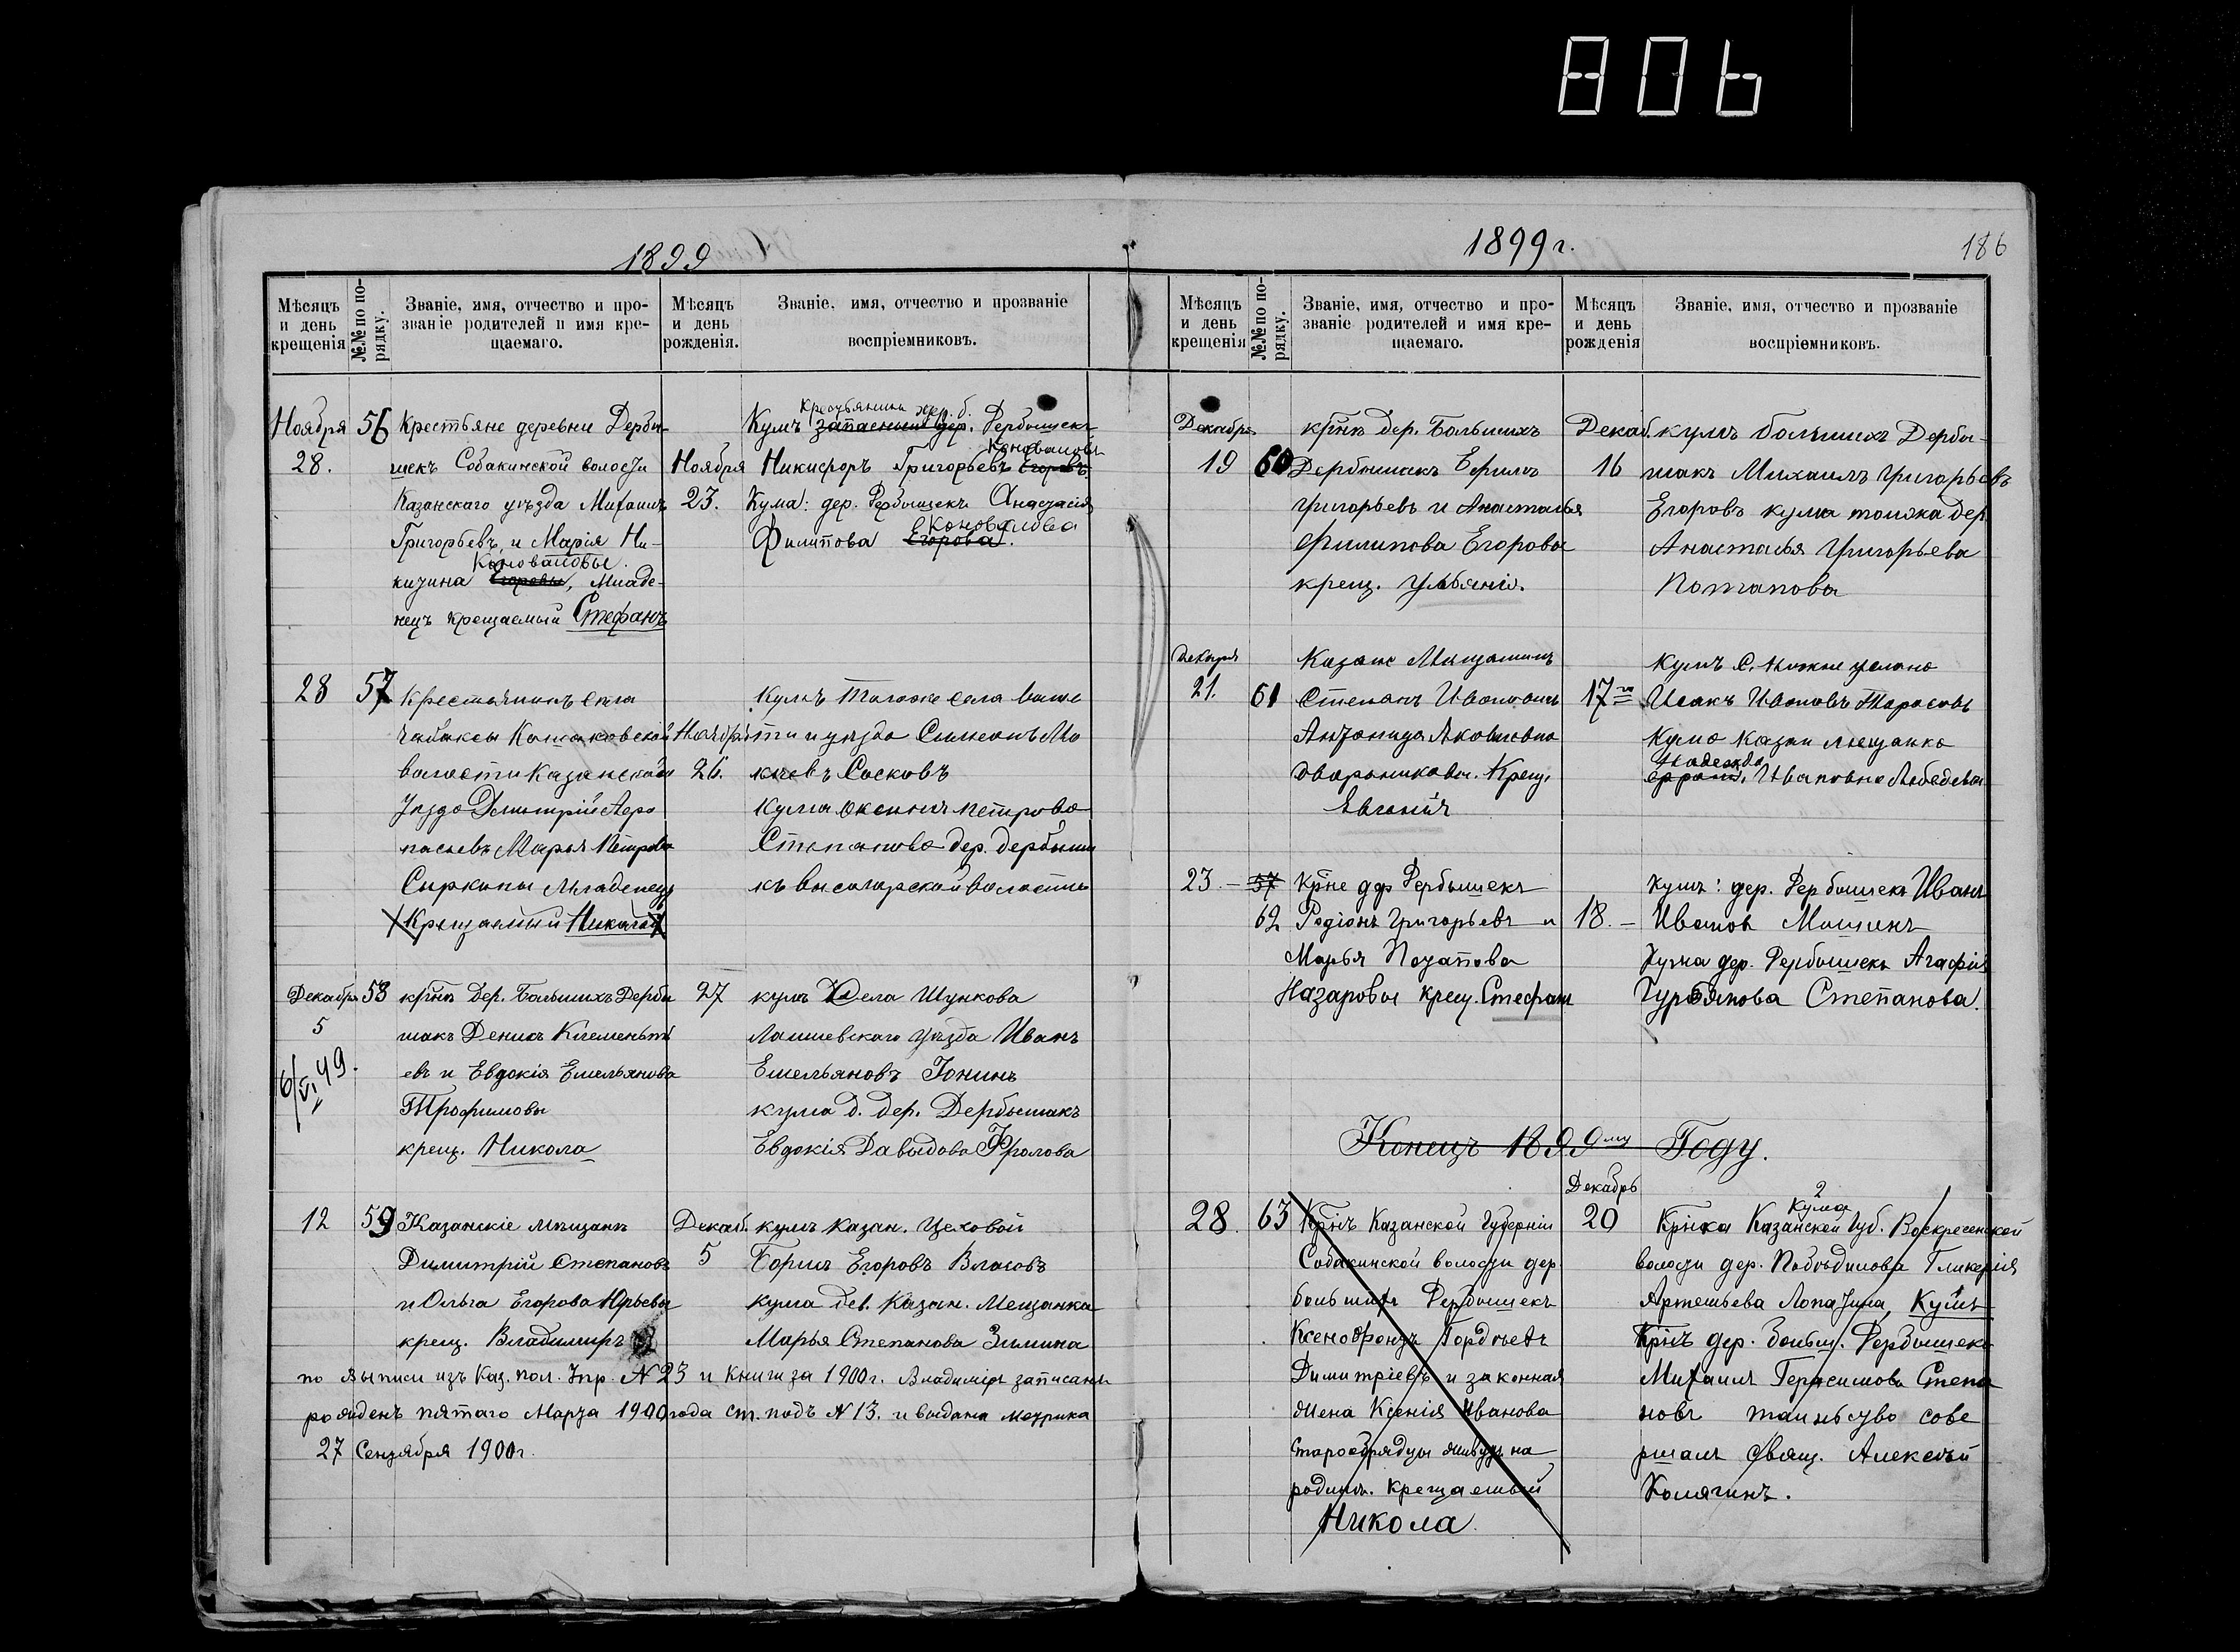 806
1899
Мѣсяцъ и день крещенія
№№ по порядку.
Званіе, имя, отчество и прозваніе родителей и имя крещаемаго.
Мѣсяцъ и день рожденія.
Званіе, имя, отчество и прозваніе воспріемниковъ.
Ноября 28.
56
Крестьяне деревни Дербы-
шекъ Собакинской волости
Казанскаго уѣзда Михаилъ
Григорьевъ, и Марія Ни-
Коноваловы.
китина Егоровы, Младе-
нецъ крещаемый Стефанъ
Ноября
23.
Крестьянинъ дер. б.
Кумъ запасный дер. Дербышекъ
Коноваловъ
Никифоръ Григорьевъ Егоровъ
Кума: дер. Дербышекъ Анастасія
Коновалова
Филипова Егорова.
28
57
Крестьянинъ села
Чабаксы Кашаковской
волости Казанскаго
Уѣзда Дмитрій
Марья Петрова
Сыркины Младенецъ
Крещаемый Николай
Ноября
26.
Кумъ Тогоже села волос
ти и уѣзда Симеонъ Мо
кѣевъ Сосковъ
Кума Оксинья Петрова
Степанова дер. дербыше
къ высогорской волости
Декабря 5
58
крṉне дер. Большихъ Дербы
шакъ Денисъ Клементь
евъ и Евдокія Емельянова
Трофимовы
крещ. Никола
27
кумъ Села Шункова
Лаишевскаго Уѣзда Иванъ
Емельяновъ Іонинъ
кума д. дер. Дербышакъ
Евдокія Давыдова Фролова
6/VI 99.
12
59
Казанскіе мѣщане
Димитрій Степановъ
и Ольга Егорова Юрьевы
крещ. Владимиръ
Декаб.
5
кумъ Казан. Цеховой
Борисъ Егоровъ Власовъ
кума дев. Казан. Мещанка
Марья Степанова Зимина
по выписи изъ Каз. пол. Упр. № 23 и книги за 1900г. Владиміръ записанъ
рожденъ пятаго Марта 1900 года ст. подъ № 13. и выдана метрика
27 Сентября 1900г.
1899 г.
186
Мѣсяцъ и день крещенія
№№ по порядку.
Званіе, имя, отчество и прозваніе родителей и имя крещаемаго.
Мѣсяцъ и день рожденія
Званіе, имя, отчество и прозваніе воспріемниковъ.
Декабря
19
60
крне дер. Большихъ
Дербышакъ Ефимъ
Григорьевъ и Анастасья
Филипова Егоровы
крещ. Ульянія.
Декаб.
16
кумъ большихъ Дербы-
шакъ Михаилъ Григорьевъ
Егоровъ кума тожа дер.
Анастасья Григорьева
Потапова
Декабря
21.
61
Казанс Мещанинъ
Степанъ Ивановичъ
Антонида Яковлевна
Дворниковы. Крещ.
Евгенія
17го
Кумъ С.
Исакъ Ивановъ Тарасовъ
Кума Казан мещанка
Надежда
Ивановна Лебедева
23.
57
62
Крне дер Дербышекъ
Родіонъ Григорьевъ и
Марья Потапова
Назаровы крещ. Стефанъ
18.
Кумъ: дер. Дербышекъ Иванъ
Ивановъ Мошинъ
Кума дер. Дербышекъ Агафія
Гурьянова Степанова.
Конецъ 1899му Году.
28.
63
Крнъ Казанской Губерніи
Собакинской волости дер
большихъ Дербышекъ
Ксенофонтъ Гордѣевъ
Димитріевъ и законная
жена Ксенія Иванова
Старообрядцы живутъ на
родинѣ. Крещаемый
Никола
Декабрь
20
2
Кума
Крнка Казанской Губ. Воскресенской
волости дер. Побѣдилова Гликерія
Артемьева Лопатина, Кумъ
Крнъ дер. Больш. Дербышекъ
Михаилъ Герасимовъ Степа
новъ таиньство сове
ршалъ Свящ. Алексѣй
Калягинъ.